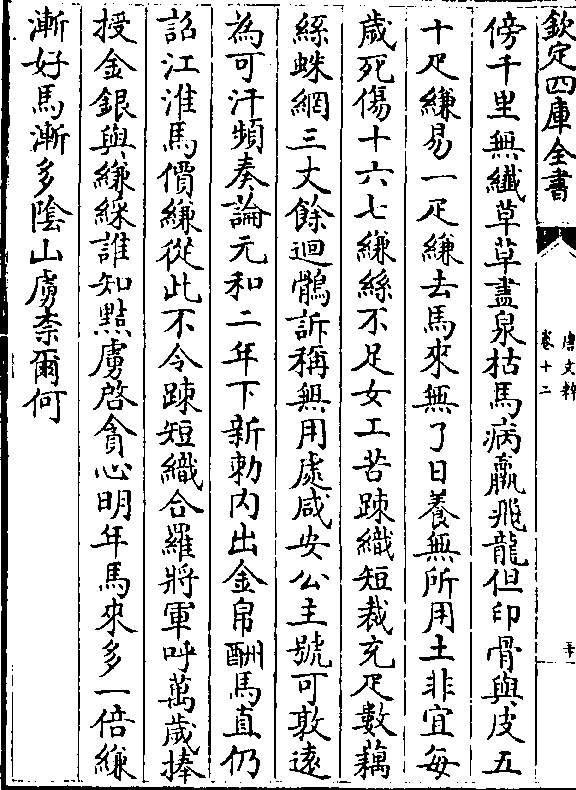 欽定四庫全書
唐文粹
卷十二
傍千里無纖草草盡泉枯馬病羸飛龍但印骨與皮五
十疋縑易一疋縑去馬來無了日養無所用土非宜每
歲死傷十六七縑絲不足女工苦踈織短裁充疋數藕
絲蛛網三丈餘迴鶻訴稱無用處咸安公主號可敦遠
為可汗頻奏論元和二年下新勅内出金帛酬馬直仍
詔江淮馬價縑從此不令踈短織合羅將軍呼萬歲捧
授金銀與縑綵誰知黠虜啓貪心明年馬來多一倍縑
漸好馬漸多陰山虜柰爾何